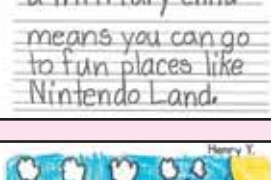 means you can go
to fun places like
Nintendo Land.
Henry Y.